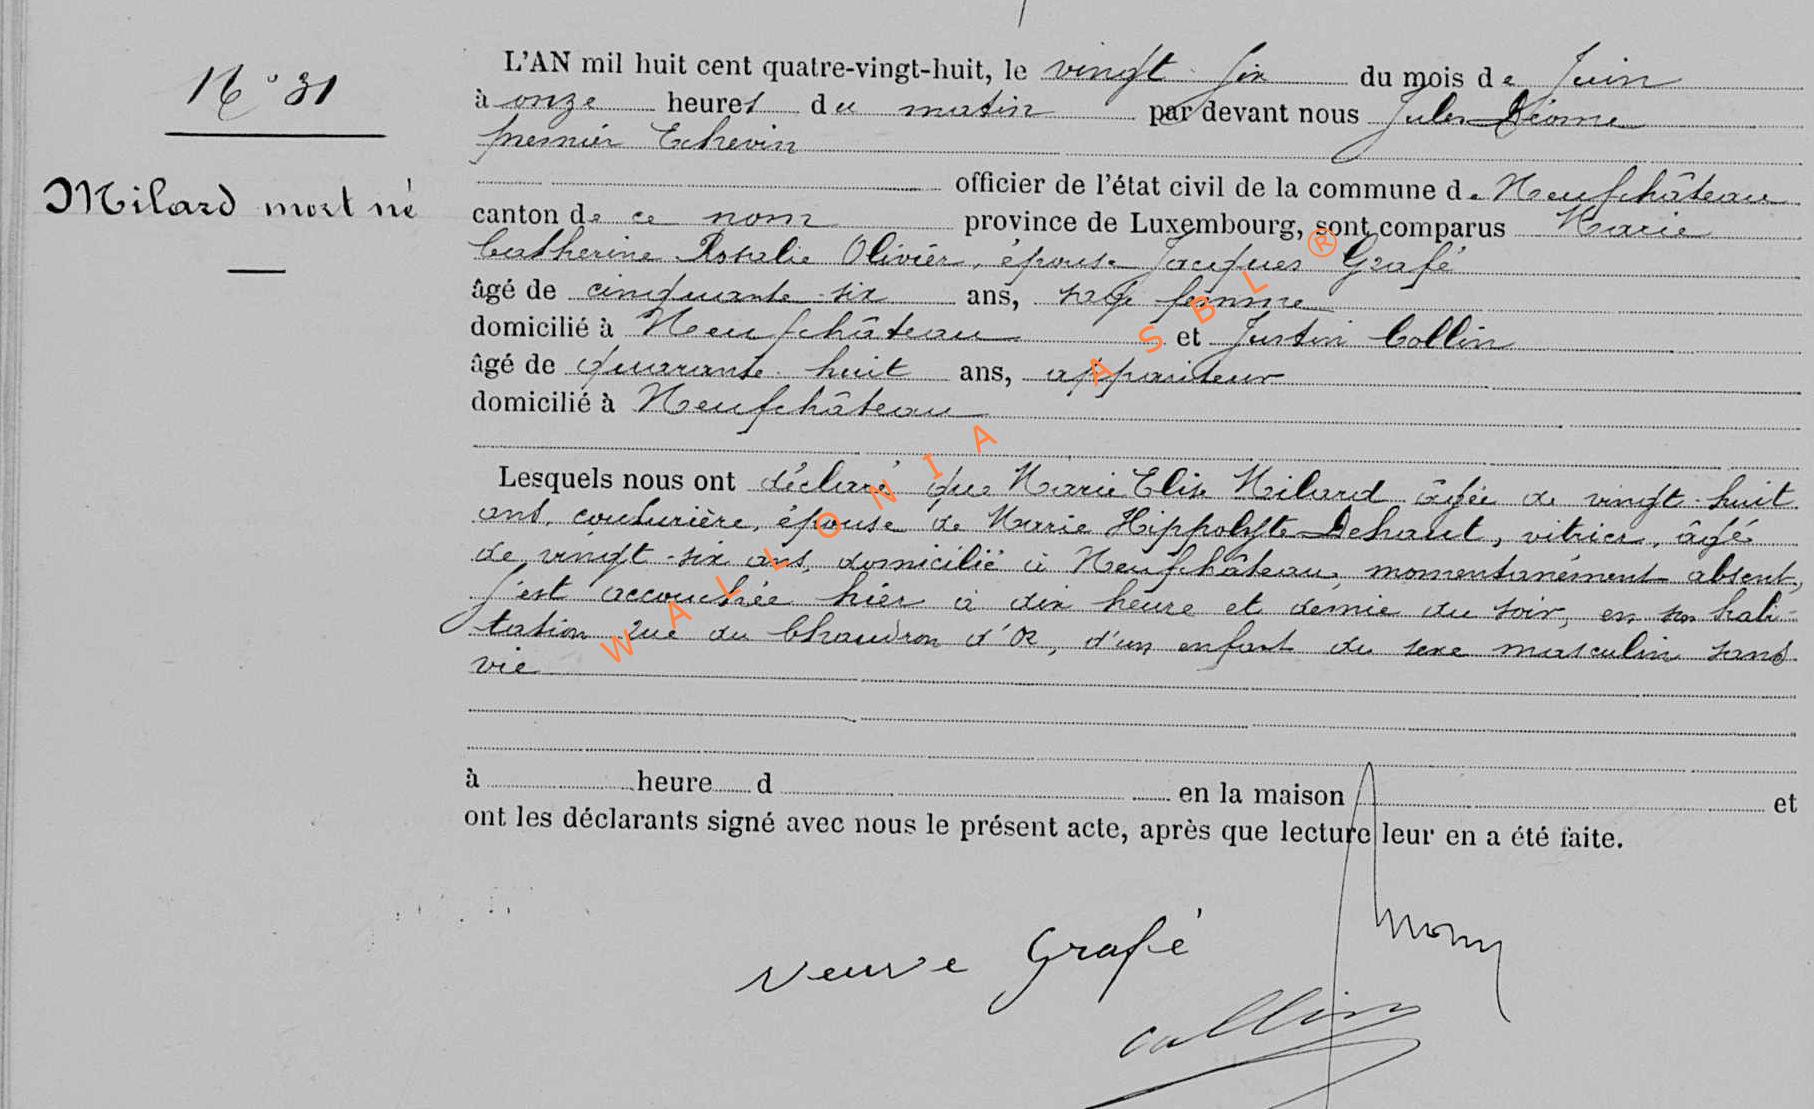 N° 31
Milard mort né
L'AN mil huit cent quatre-vingt-huit, le vingt six du mois de Juin
à onze heures du matin par devant nous Jules
premier Echevin
officier de l'état civil de la commune de Neufchâteau
canton de ce nom province de Luxembourg, sont comparus Marie
Catherine Rosalie Olivier, épouse Jacques Grafé
âgé de cinquante-six ans, sage femme
domicilié à Neufchâteau et Justin Collin
âgé de quarante-huit ans, appariteur
domicilié à Neufchâteau
Lesquels nous ont déclaré que Marie Elise Milard âgée de vingt-huit
ans, couturière, épouse de Marie Hippolyte Dehaut, vitrier, âgé
de vingt-six ans, domicilié à Neufchâteau, momentanément absent,
s'est accouchée hier à dix heure et demie du soir, en son habi-
tation rue du Chaudron d'Or, d'un enfant du sexe masculin sans
vie
à heure d en la maison et
ont les déclarants signé avec nous le présent acte, après que lecture leur en a été faite.
veuve Grafé
Collin
WALLONIA ASBL ®